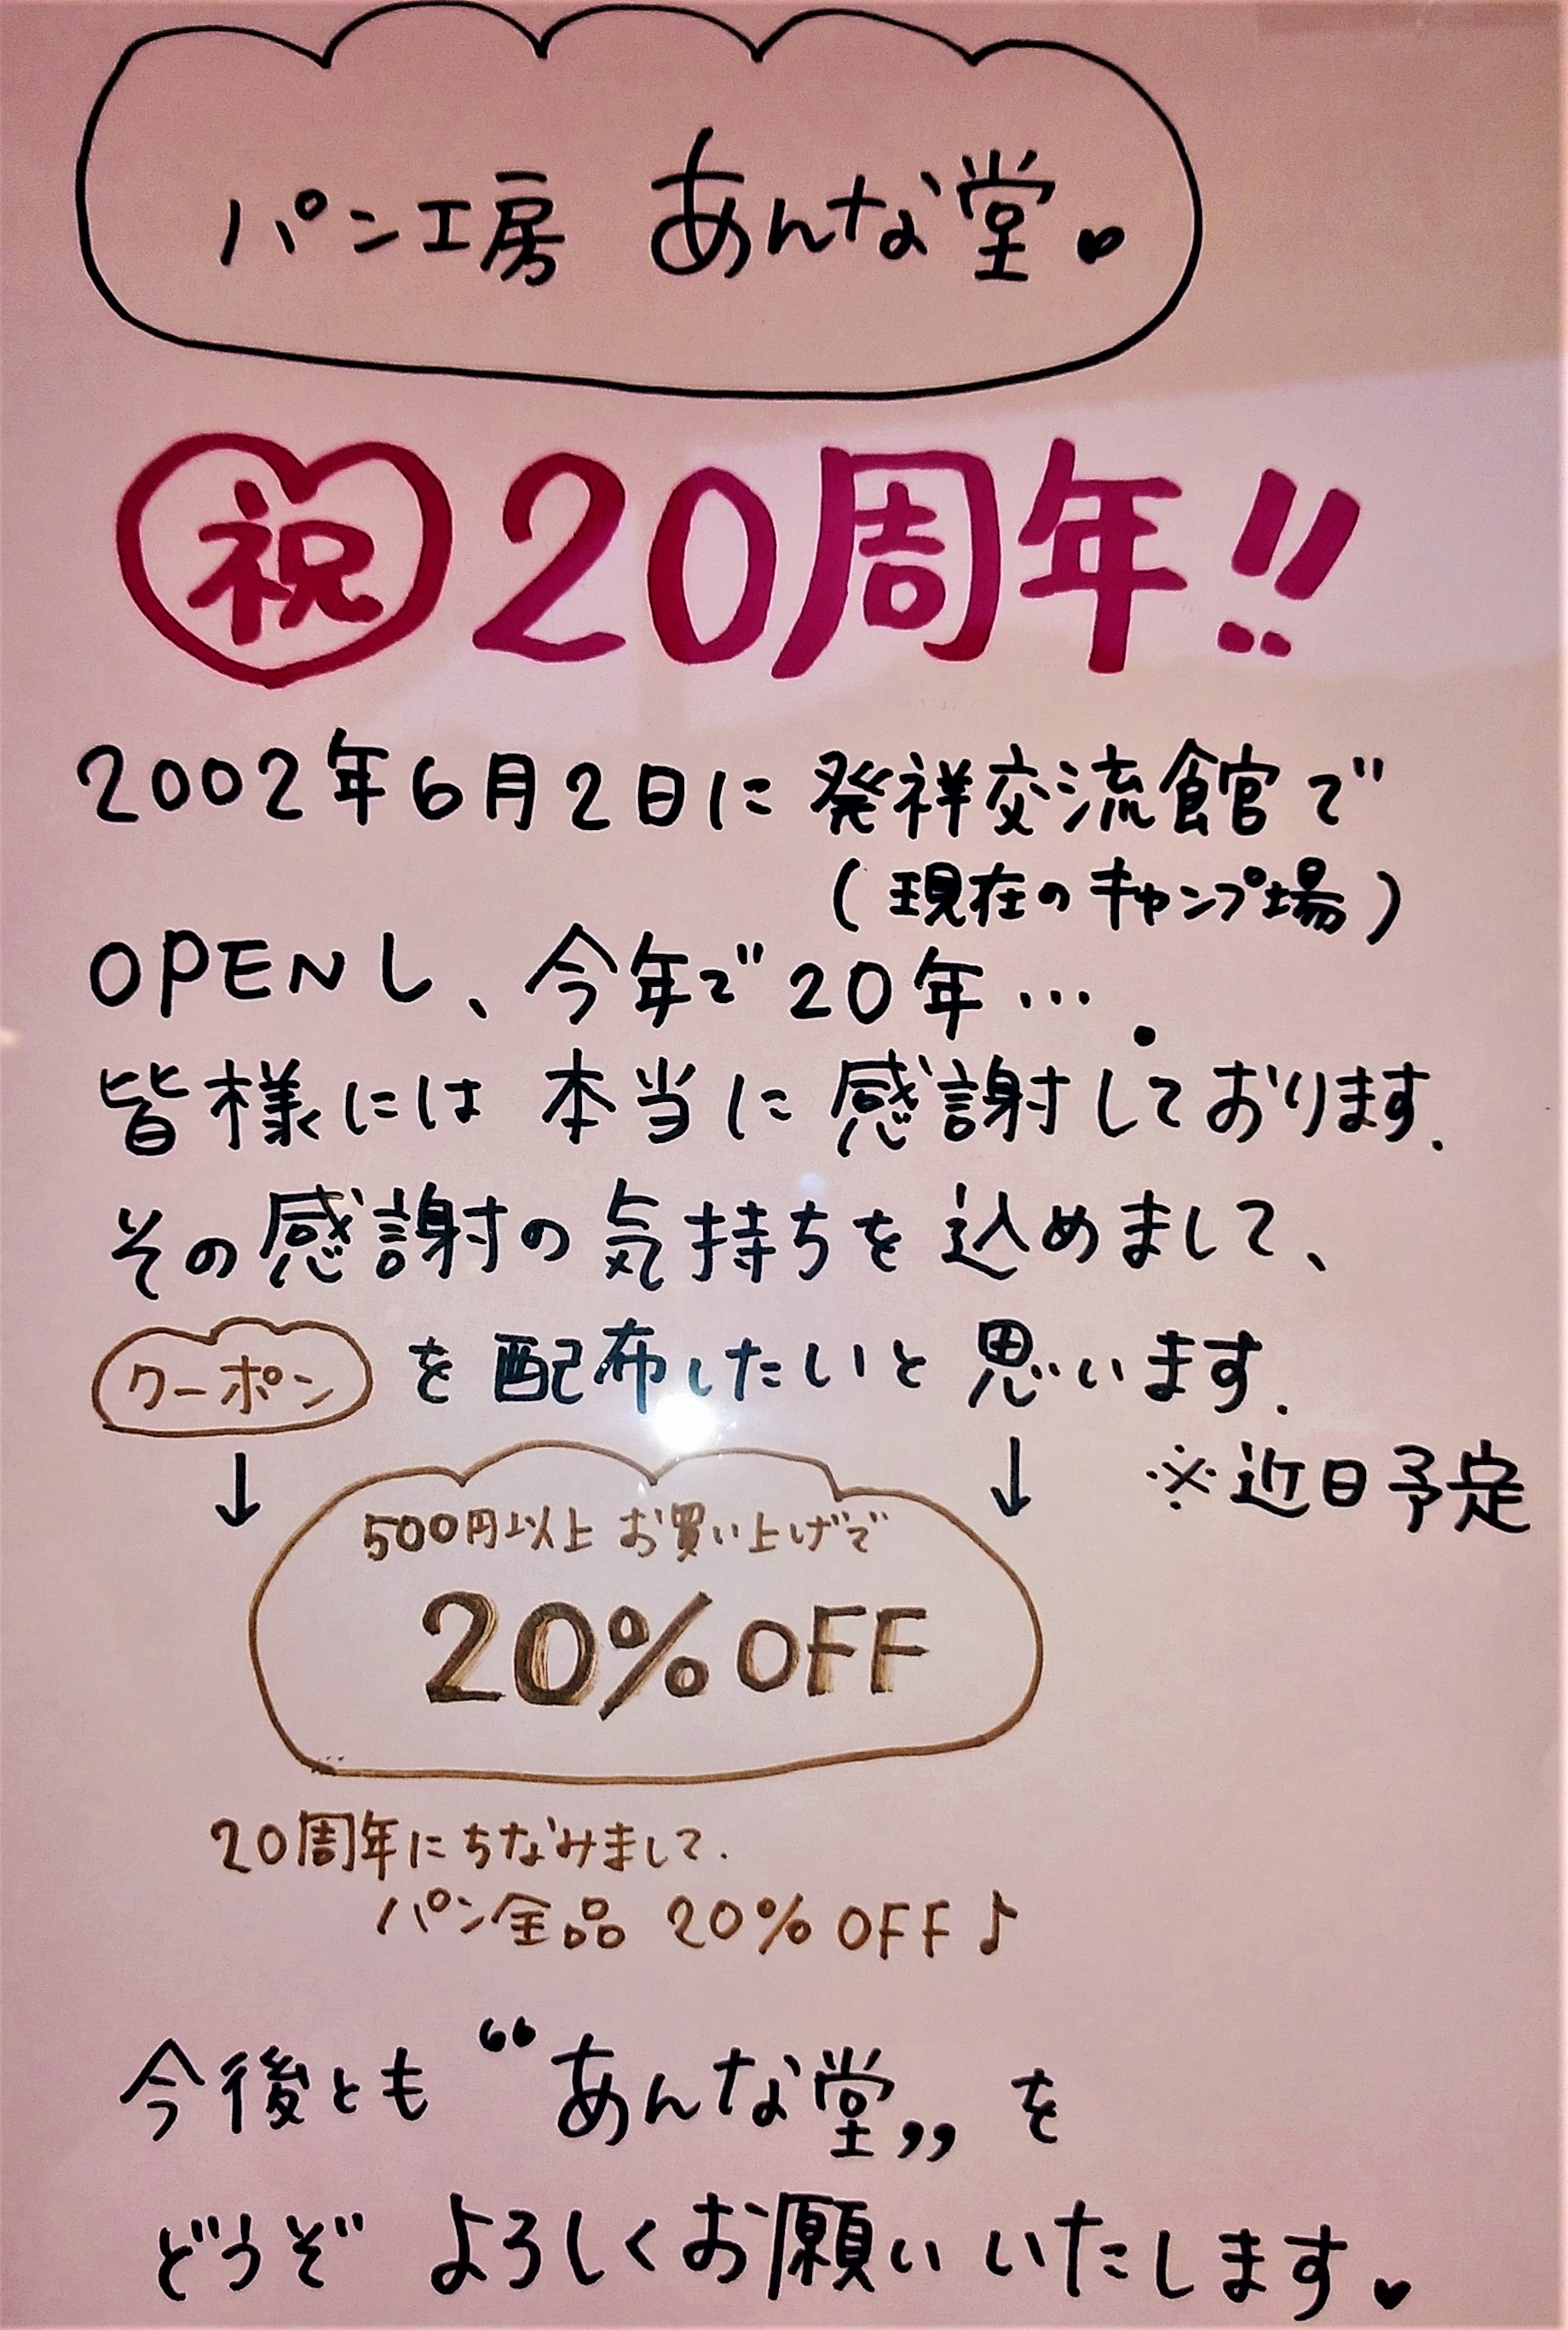 パン工房 あんな堂♥
祝 20周年!!
2002年6月2日に 発祥交流館で
(現在のキャンプ場)
OPENし、今年で20年….
皆様には 本当に 感謝しております.
その感謝の気持ちを 込めまして、
クーポン を 配布したいと 思います.
↓ ↓ ※近日予定
500円以上 お買い上げで
20% OFF
20周年にちなみまして.
パン全品 20% OFF♪
今後とも “あんな堂„ を
どうぞ よろしくお願い いたします♥